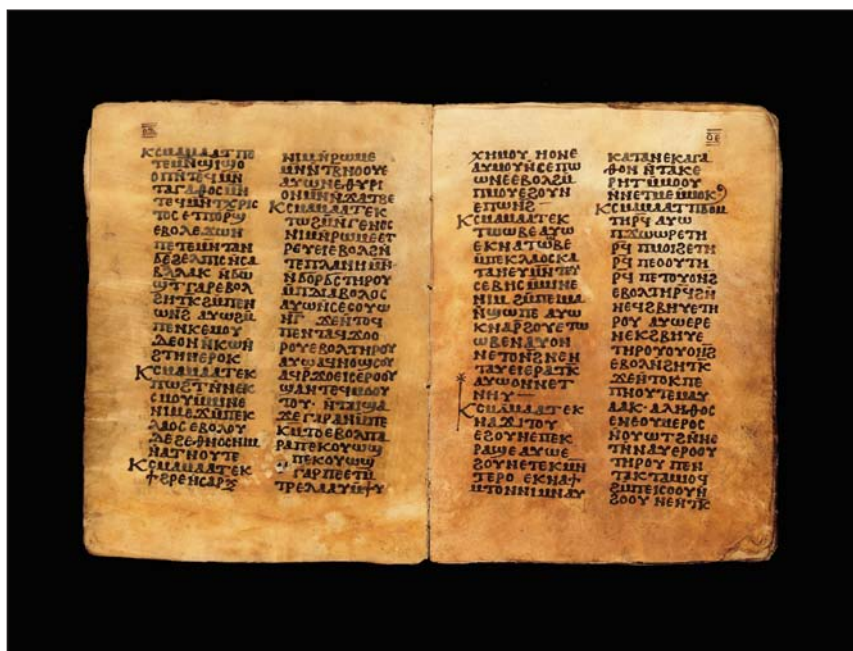 ⲕⲥⲙⲁⲙⲁⲁⲧ ⲡⲉ
ⲧⲉⲙⲛϣⲓϣⲟ
ⲟⲡⲛⲧⲉϥⲙⲛ
ⲧⲁⲅⲁⲑⲟⲥⲙⲛ
ⲧⲉϥⲙⲛⲧⲭⲣⲓⲥ
ⲧⲟⲥⲉⲧⲡⲟⲣϣ
ⲉⲃⲟⲗⲉϫⲱⲛ
ⲡⲉⲧⲉⲙⲛⲧⲁⲛ
ϩⲉⲗⲡⲓⲥⲛⲥⲁ
ⲃⲗⲗⲁⲕ ⲛϭⲱ
ϣⲧⲅⲁⲣⲉⲃⲟⲗ
ϩⲏⲧⲕϩⲙⲡⲉⲛ
ⲱⲛϩⲁⲩⲱϩⲙ
ⲡⲉⲛⲕⲉⲙⲟⲩ
ϩⲧⲏⲛⲉⲣⲟⲕ
ⲕⲥⲙⲁⲙⲁⲁⲧⲉⲕ
ⲡⲱϩⲧⲛⲛⲉⲕ
ⲥⲙⲟⲩⲙⲙⲛⲉ
ⲛⲓⲙⲉϫⲙⲡⲉⲕ
ⲗⲁⲟⲥⲉⲃⲟⲗⲟⲩ
ⲇⲉϩⲉⲑⲛⲟⲥⲛⲓⲙ
ⲛⲁⲧⲛⲟⲩⲧⲉ
ⲕⲥⲙⲁⲙⲁⲁⲧⲉⲕ
ϯϩⲣⲉⲛⲥⲁⲣⲝ
ⲛⲓⲙⲛⲣⲱⲙⲉ
ⲙⲛⲛⲧⲃⲛⲟⲟⲩⲉ
ⲁⲩⲱⲛⲉⲑⲩⲣⲓ
ⲟⲛⲙⲛⲛϫⲁⲧⲃⲉ
ⲕⲥⲙⲁⲙⲁⲁⲧⲉⲕ
ⲧⲱϩⲙⲛⲅⲉⲛⲟⲥ
ⲛⲓⲙⲛⲣⲱⲙⲉⲉⲧ
ⲣⲉⲩⲉⲓⲉⲃⲟⲗϩⲛ
ⲧⲉⲡⲗⲁⲛⲏⲙⲛ
ⲛϭⲟⲣϭⲥⲧⲏⲣⲟⲩ
ⲙⲡⲇⲓⲁⲃⲟⲗⲟⲥ
ⲁⲩⲱⲛⲥⲉⲥⲟⲩⲱ
ⲛⲅ ϫⲉⲛⲧⲟϥ
ⲡⲉⲛⲧⲁϥϫⲟⲟ
ⲣⲟⲩⲉⲃⲟⲗⲧⲏⲣⲟⲩ
ⲁⲩⲱⲁϥⲛⲟϣⲥⲟⲩ
ⲁϥⲣϫⲟⲉⲓⲥⲉⲣⲟⲟⲩ
ϣⲁⲛⲧⲉϥⲙⲟⲩ
ϫⲉⲅⲁⲣⲁⲛⲙⲡⲉ
ⲕⲙⲧⲟⲉⲃⲟⲗⲡⲁ
ⲣⲁⲡⲉⲕⲟⲩⲱϣ
ⲡⲉⲕⲟⲩⲱϣ
ⲅⲁⲣⲡⲉⲉⲧⲙ
ⲧⲣⲉⲗⲁⲁⲩⲙϯⲩ
ⲭⲏⲙⲟⲩ ⲏⲟⲛⲉ
ⲁⲩⲙⲟⲩⲛⲥⲉⲡⲱ
ⲱⲛⲉⲉⲃⲟⲗϩⲙ
ⲡⲙⲟⲩⲉϩⲟⲩⲛ
ⲉⲡⲱⲛϩ
ⲕⲥⲙⲁⲙⲁⲁⲧⲉⲕ
ⲧⲱⲱⲃⲉⲁⲩⲱ
ⲉⲕⲛⲁⲧⲱⲃⲉ
ⲙⲡⲉⲕⲗⲁⲟⲥⲕⲁ
ⲧⲁⲛⲉⲩⲙⲛⲧⲉⲩ
ⲥⲉⲃⲏⲥⲙⲙⲛⲉ
ⲛⲓⲙϩⲙⲡⲉⲙⲁ
ⲛϣⲱⲡⲉ ⲁⲩⲱ
ⲕⲛⲁⲣϩⲟⲩⲉⲧⲱ
ⲱⲃⲉⲛⲁⲩⲟⲛ
ⲛⲉⲧⲟⲛϩⲛⲉⲛ
ⲧⲁⲩⲉⲓⲉⲣⲁⲧⲕ
ⲁⲩⲱⲟⲛⲛⲉⲧ
ⲛⲏⲩ
ⲕⲥⲙⲁⲙⲁⲁⲧⲉⲕ
ⲛⲁϫⲓⲧⲟⲩ
ⲉϩⲟⲩⲛⲉⲡⲉⲕ
ⲣⲁϣⲉⲁⲩⲱⲉ
ϩⲟⲩⲛⲉⲧⲉⲕⲙⲛ
ⲧⲉⲣⲟ ⲉⲕⲛⲁϯ
ⲙⲧⲟⲛⲛⲓⲙⲛⲁⲩ
ⲕⲁⲧⲁⲛⲉⲕⲁⲅⲁ
ⲑⲟⲛ ⲛⲧⲁⲕⲉ
ⲣⲏⲧⲙⲙⲟⲟⲩ
ⲛⲛⲉⲧⲙⲉⲙⲙⲟⲕ
ⲕⲥⲙⲁⲙⲁⲁⲧⲡⲃⲟⲙ
ⲧⲏⲣϥ ⲁⲩⲱ
ⲡϫⲱⲱⲣⲉⲧⲏ
ⲣϥ ⲡⲙⲟⲓϩⲉⲧⲏ
ⲣϥ ⲡⲉⲟⲟⲩⲧⲏ
ⲣϥ ⲡⲉⲧⲟⲩⲟⲛϩ
ⲉⲃⲟⲗⲧⲏⲣϥϩⲛ
ⲛⲉϥϩⲃⲏⲩⲉⲧⲏ
ⲣⲟⲩ ⲁⲩⲱⲉⲣⲉ
ⲛⲉⲕϩⲃⲏⲩⲉ
ⲧⲏⲣⲟⲩⲟⲩⲟⲛϩ
ⲉⲃⲟⲗⲛϩⲏⲧⲕ
ϫⲉⲛⲧⲟⲕⲡⲉ
ⲡⲛⲟⲩⲧⲉⲙⲁⲩ
ⲁⲁⲕ · ⲁⲗⲏⲑⲟⲥ
ⲉⲛⲉⲟⲩⲙⲉⲣⲟⲥ
ⲛⲟⲩⲱⲧϩⲛⲛⲉ
ⲧⲛⲛⲁⲩⲉⲣⲟⲟⲩ
ⲧⲏⲣⲟⲩ ⲡⲉⲛ
ⲧⲁⲕⲧⲁⲙⲟϥ
ϩⲙⲡⲉⲓⲥⲟⲟⲩⲛ
ϩⲟⲟⲩ ⲛⲉⲛⲧⲕ